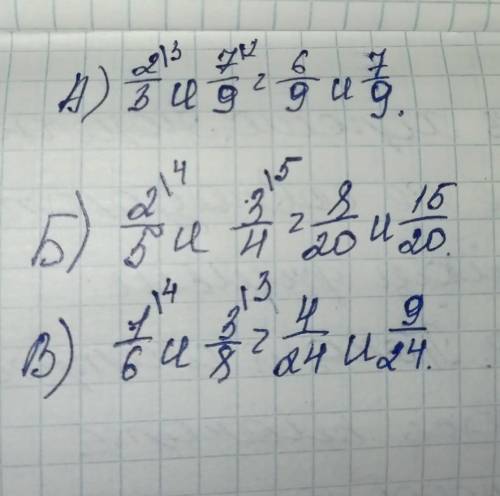 А) 2/3\3 и 7/9\1 = 6/9 и 7/9.
Б) 2/5\4 и 3/4\5 = 8/20 и 15/20.
В) 1/6\4 и 3/8\3 = 4/24 и 9/24.